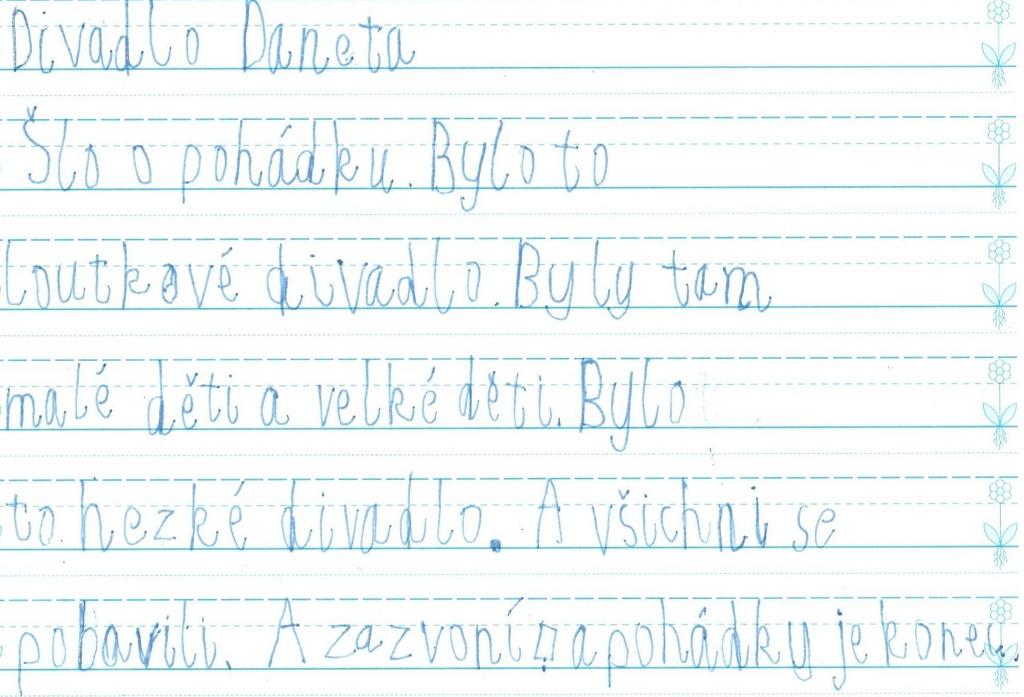 Divadlo Daneta
Šlo o pohádku. Bylo to
loutkové divadlo. Byly tam
malé děti a velké děti. Bylo
to hezké divadlo. A všichni se
pobavili. A zazvoní a pohádky je konec.